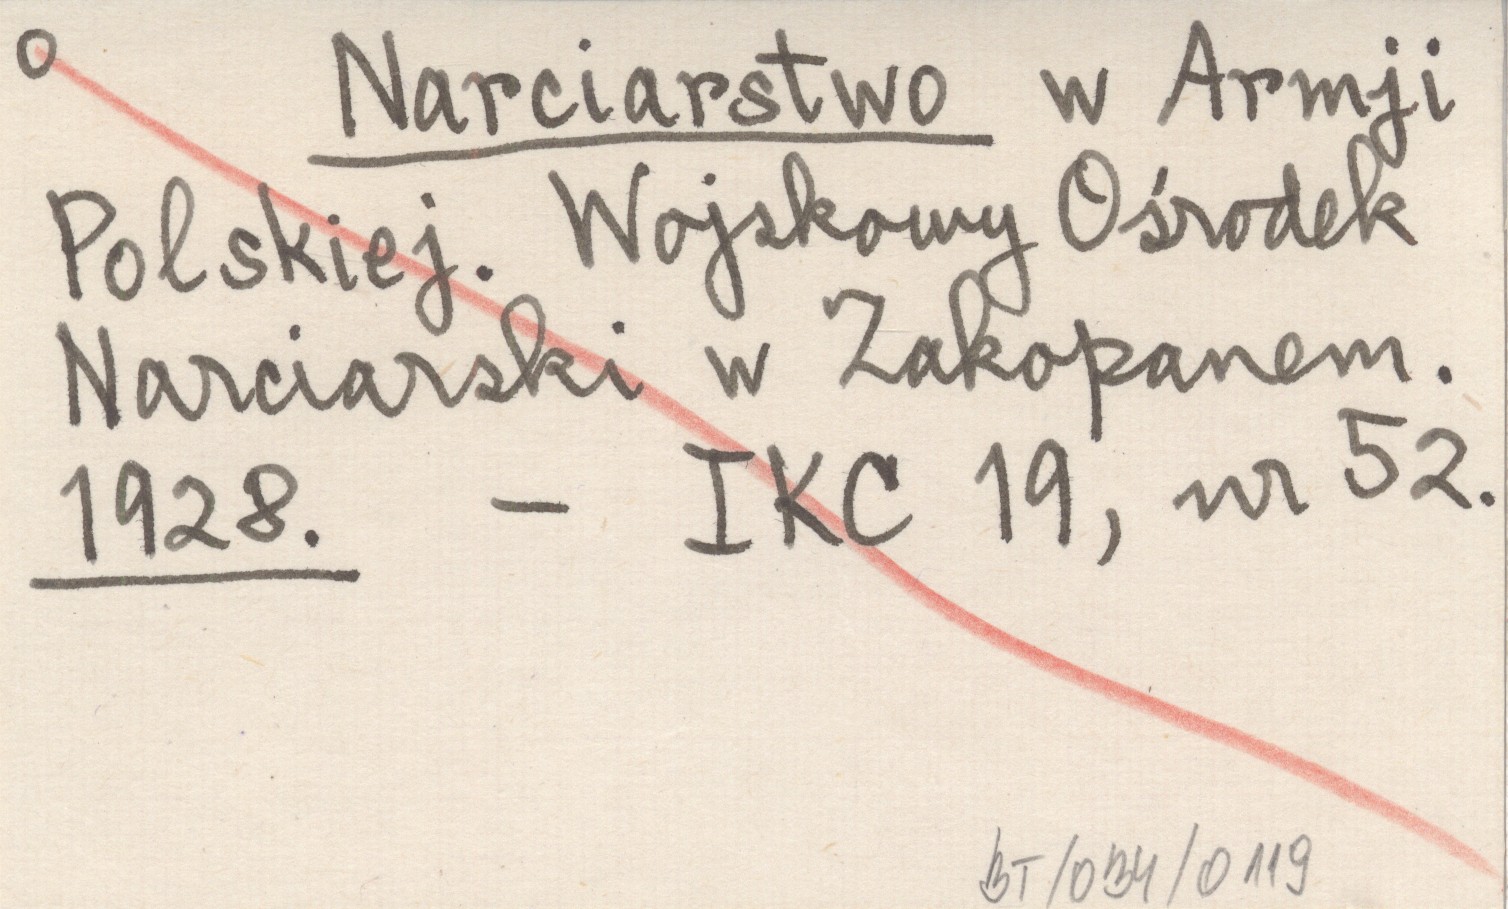 o Narciarstwo w Armji
Polskiej. Wojskowy Ośrodek
Narciarski w Zakopanem.
1928. - IKC 19, nr 52.
BT/034/0119